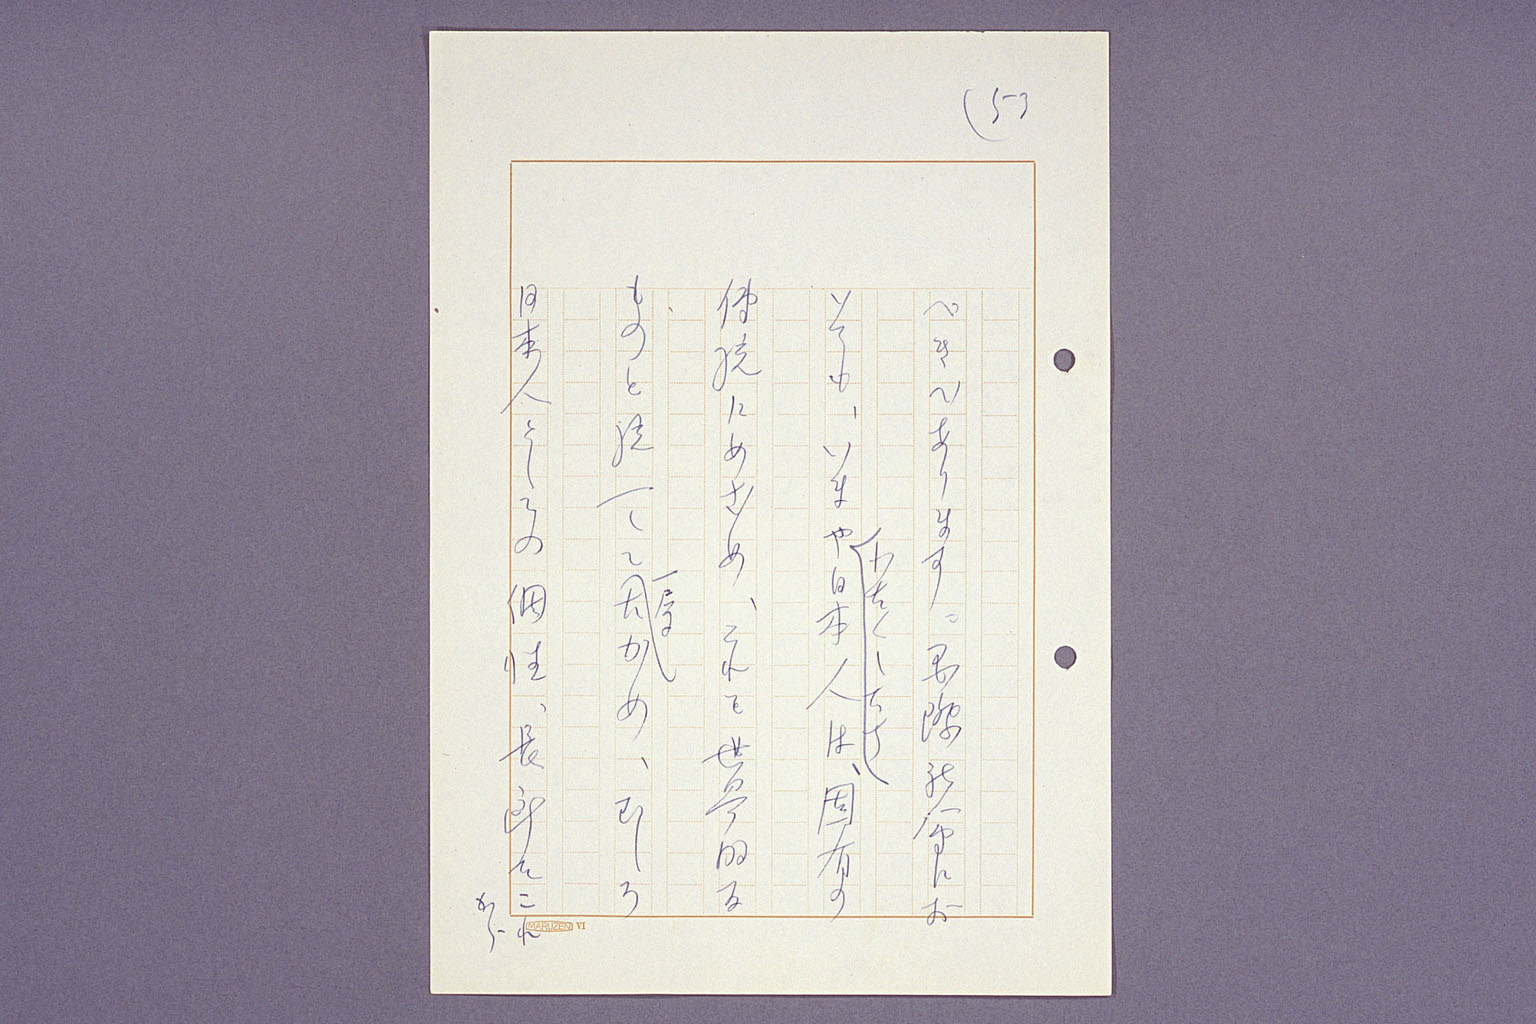 (53
べきであります。国際社會にお
いても、いまや日本人は、固有の
わたくしたち
傳統にめざめ、これを世界的な
ものと統一して かめ、むしろ
一層
日本人としての個性、長所をこれ
から
MARUZEN VI